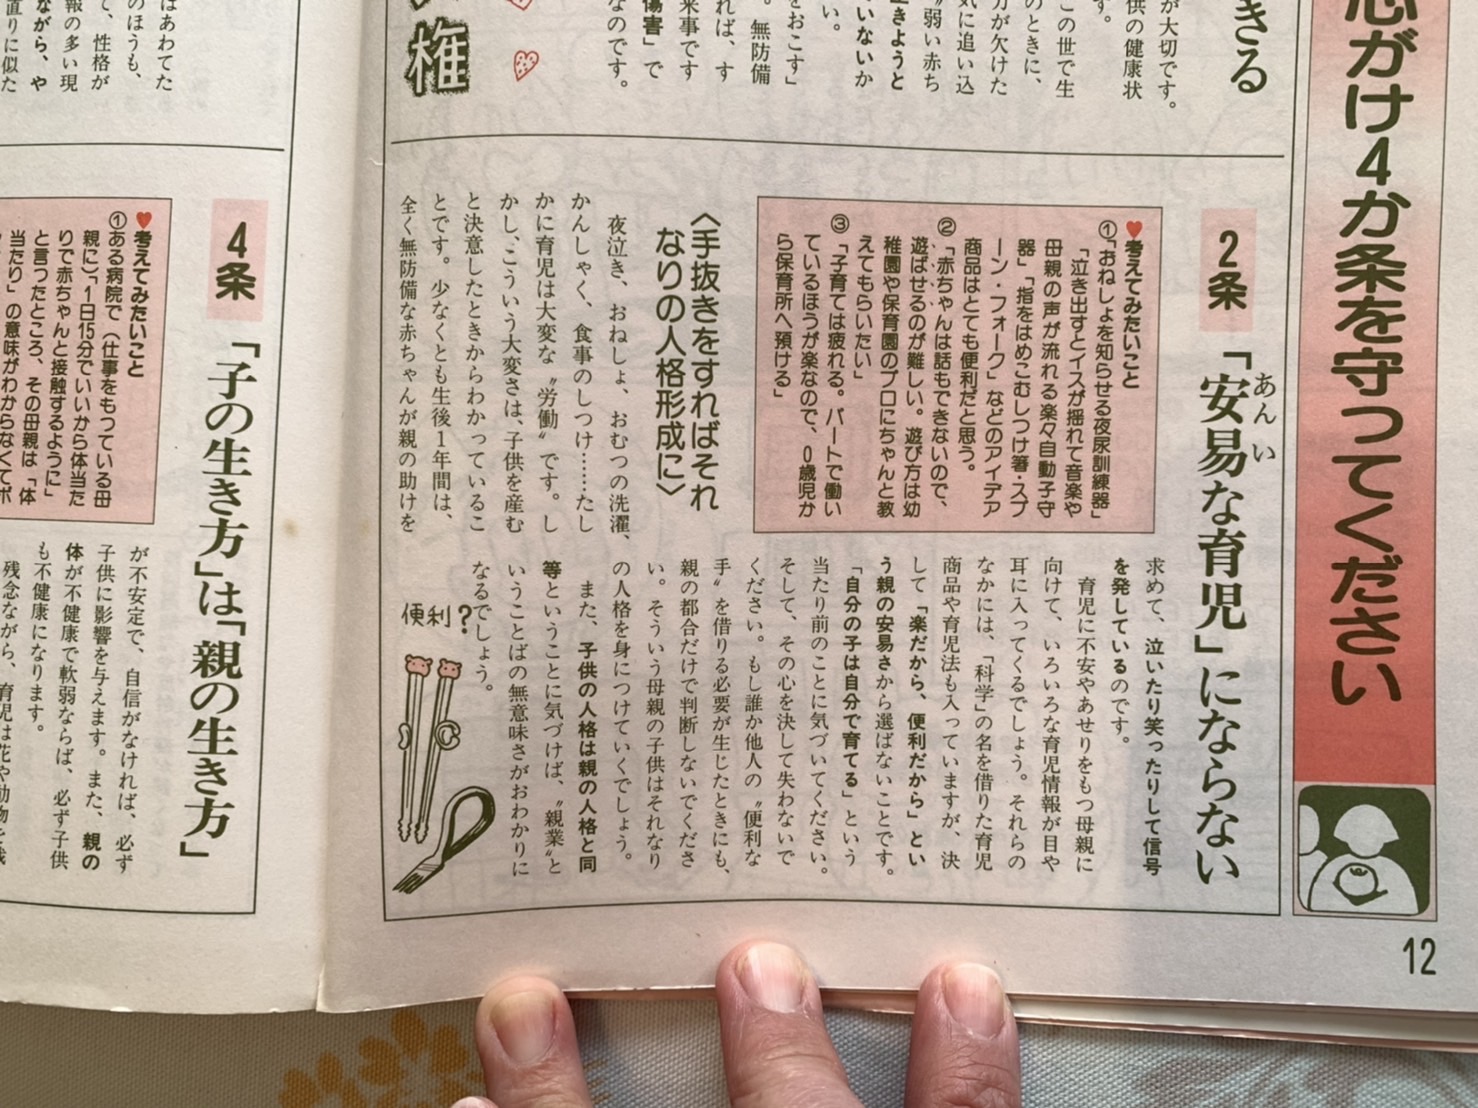 心がけ4か条を守ってください
きる
が大切です。
供の健康状
す。
この世で生
のときに、
力が欠けた
気に追い込
〝弱い赤ち
生きようと
いないか
い。
をおこす」
。無防備
れば、す
来事です
傷害」で
なのです。
権
2条
「安易な育児」にならない
あんい
♥考えてみたいこと
①「おねしょを知らせる夜尿訓練器」
「泣き出すとイスが揺れて音楽や
母親の声が流れる楽々自動子守
器」「指をはめこむしつけ箸・スプ
ーン・フォーク」などのアイデア
商品はとても便利だと思う。
②「赤ちゃんは話もできないので、
遊ばせるのが難しい。遊び方は幼
稚園や保育園のプロにちゃんと教
えてもらいたい」
③「子育ては疲れる。パートで働い
ているほうが楽なので、0歳児か
ら保育所へ預ける」
〈手抜きをすればそれ
なりの人格形成に〉
夜泣き、おねしょ、おむつの洗濯、
かんしゃく、食事のしつけ……たし
かに育児は大変な〝労働〟です。し
かし、こういう大変さは、子供を産む
と決意したときからわかっているこ
とです。少なくとも生後1年間は、
全く無防備な赤ちゃんが親の助けを
求めて、泣いたり笑ったりして信号
を発しているのです。
育児に不安やあせりをもつ母親に
向けて、いろいろな育児情報が目や
耳に入ってくるでしょう。それらの
なかには、「科学」の名を借りた育児
商品や育児法も入っていますが、決
して「楽だから、便利だから」とい
う親の安易さから選ばないことです。
「自分の子は自分で育てる」という
当たり前のことに気づいてください。
そして、その心を決して失わないで
ください。もし誰か他人の〝便利な
手〟を借りる必要が生じたときにも、
親の都合だけで判断しないでくださ
い。そういう母親の子供はそれなり
の人格を身につけていくでしょう。
また、子供の人格は親の人格と同
等ということに気づけば、〝親業〟と
いうことばの無意味さがおわかりに
なるでしょう。
便利?
12
はあわてた
のほうも、
て、性格が
報の多い現
ながら、や
直りに似た
4条
「子の生き方」は「親の生き方」
♥考えてみたいこと
①ある病院で(仕事をもっている母
親に)、「1日15分でいいから体当た
りで赤ちゃんと接触するように」
と言ったところ、その母親は「体
当たり」の意味がわからなくてポ
が不安定で、自信がなければ、必ず
子供に影響を与えます。また、親の
体が不健康で軟弱ならば、必ず子供
も不健康になります。
残念ながら、育児は花や動物を